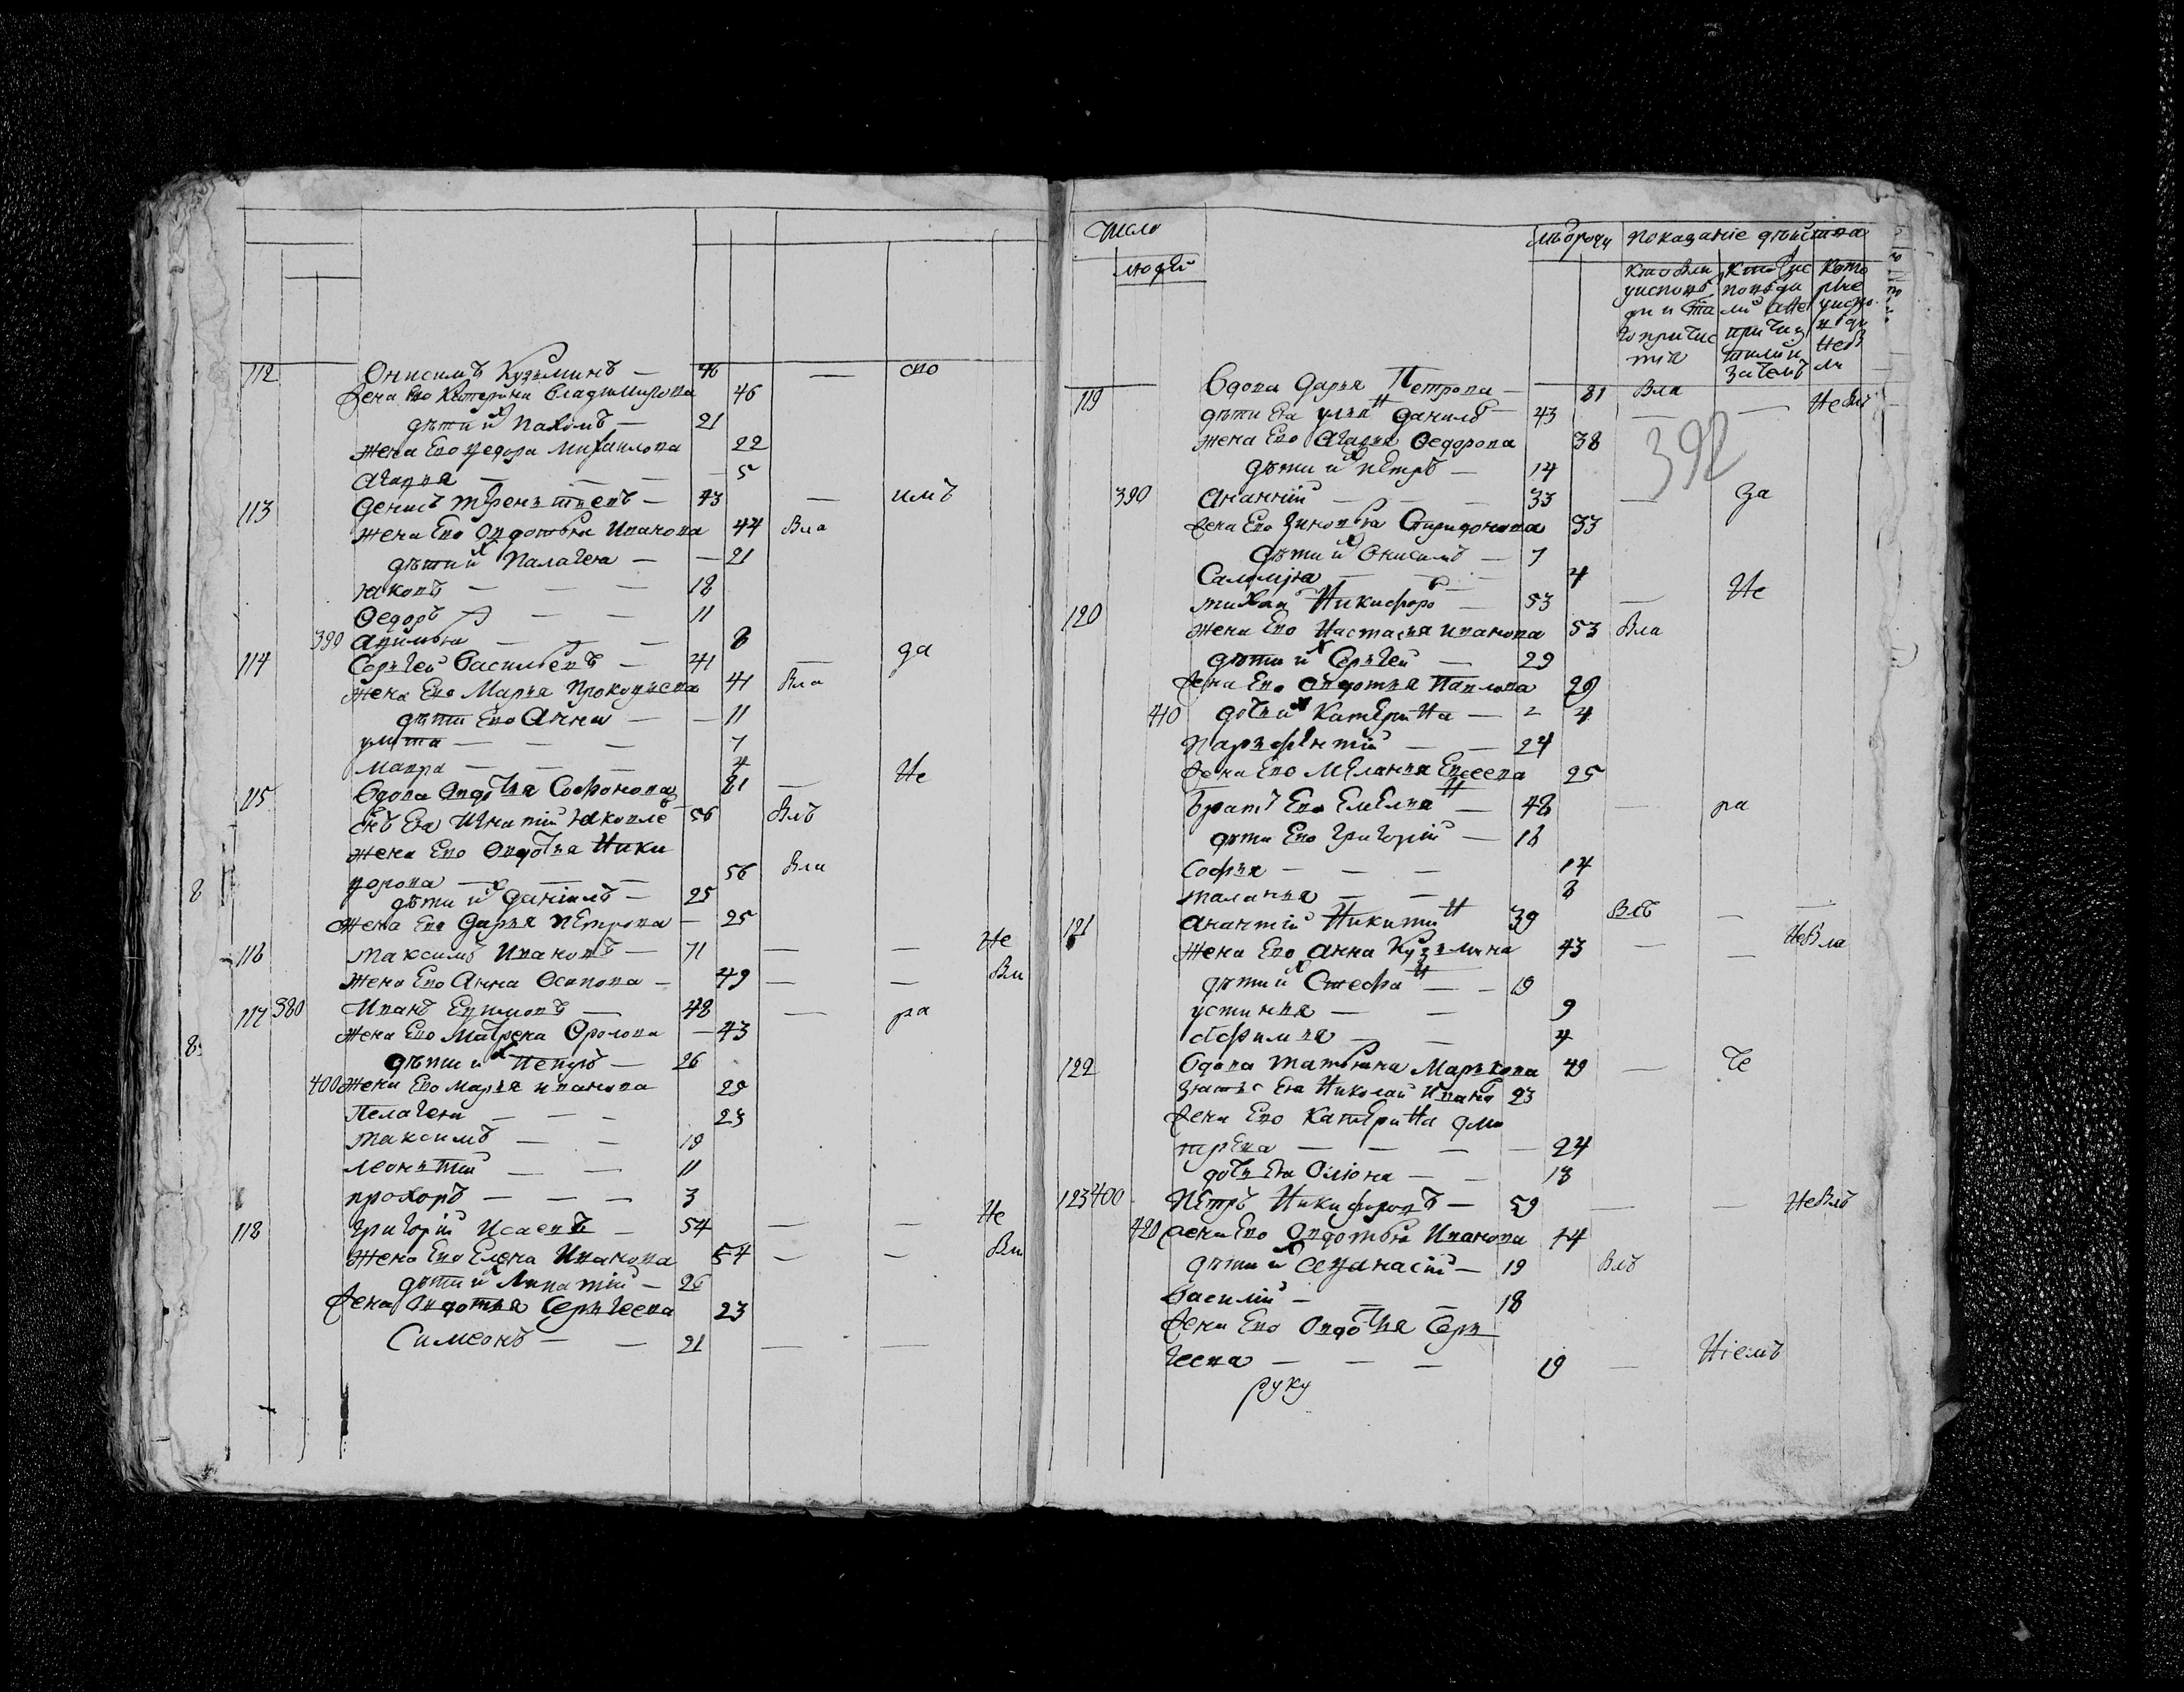 112 Онисимъ Кузьминъ — 46 — сио
Жена Ево Катерина Владимирова 46
дѣти иx Пахомъ — 21
жена Ево Ѳедора Михаилова 22
Агаѳья — — — 5
113 Денисъ Терентиевъ — 43 — имъ
жена Ево Овдотья Иванова 44 Вла
дѣти иx Палагея — — 21
Яковъ — — — 18
Ѳедоръ — — — 11
390 — — — 8
114 Сергеи Васильевъ — 41 — да
жена Ево Марья Прокофьева 41 Вла
дѣти Ево Анна — — 11
улита — — — 7
Мавра — — — 4
115 Вдова Овдотья Софонова 81 — Не
снъ Ея Игнатіи Яковле 56 Влъ
жена Ево Овдотья Ники
форова — — — 56 Вла
8 дѣти иx Даніилъ — 25
жена Ево Дарья Петрова — 25
116 Максимъ Ивановъ — 71 — — Не
жена Ево Анна Осипова — 49 — — Вл
117 380 Иванъ Ефимовъ — 48 — ра
жена Ево Матрена Фролова — 43
8 дѣти иx Петръ — 26
400 жена Ево Марья иванова 25
Пелагея — — — 23
Максимъ — — 19
леонтіи — — 11
прохоръ — — — 3
118 Григоріи Исаевъ — 54 — — Не
Жена Ево Елена Иванова 54 — — Вл
дѣти иx Ипатіи — 26
Жена Овдотья Сергеева 23
Симеонъ — — 21 — —
Число
людеи
Лѣты отроду Показаніе дѣиства
Кто были Кто ис Кото
уиспов повѣди рые
ди и Свя ли аНе уиспо
то причас причаш вѣди
тія тили и Небы
зачемъ ли
119 Вдова Дарья Петрова — 81 Вла
дѣти Ея ульянъ Данилъ — 43 — — Не Влъ
392
жена Ево Агафья Ѳедорова 38
дѣти иx петръ — 14
390 Ананіи — — — 33 — За
Жена Ево Зиновья Спиридонова 33
дѣти иx Онисимъ — 7
Саломия — — — 4
120 михаи Никифоро — 53 — Не
жена Ево Настасья иванова 53 Вла
дѣти иx Сергеи — 29
Жена Ево Овдотья Павлова 29
410 дочь иx КатериНа — 4
Парфентіи — — 24
Жена Ево Меланья Евсеева 25
братъ Ево Емельян — 48 — ра
дѣти Ево Григоріи — 18
Софья — — — 14
маланья — — 8
121 Анантіи Никитин 39 Влъ — —
жена Ево Анна Кузьмина 43 — — НеВла
дѣти иx Стефан — — 19
устинья — — 9
Афимья — — 4
122 Вдова татьяна Маркова 49 — Че
Зять Ея Николаи Ивано 23
Жена Ево КатериНа дми
трева — — — — 24
дочь Ея Олiона — — 18
123 400 Петръ Никифоровъ — 59 — — НеВлъ
420 Жена Ево Овдотья Иванова 44
дѣти иx Афанасіи — 19 Влъ
Василіи — — — 18
Жена Ево Овдотья Сер
геева — — — 19 — Ніемъ
руку